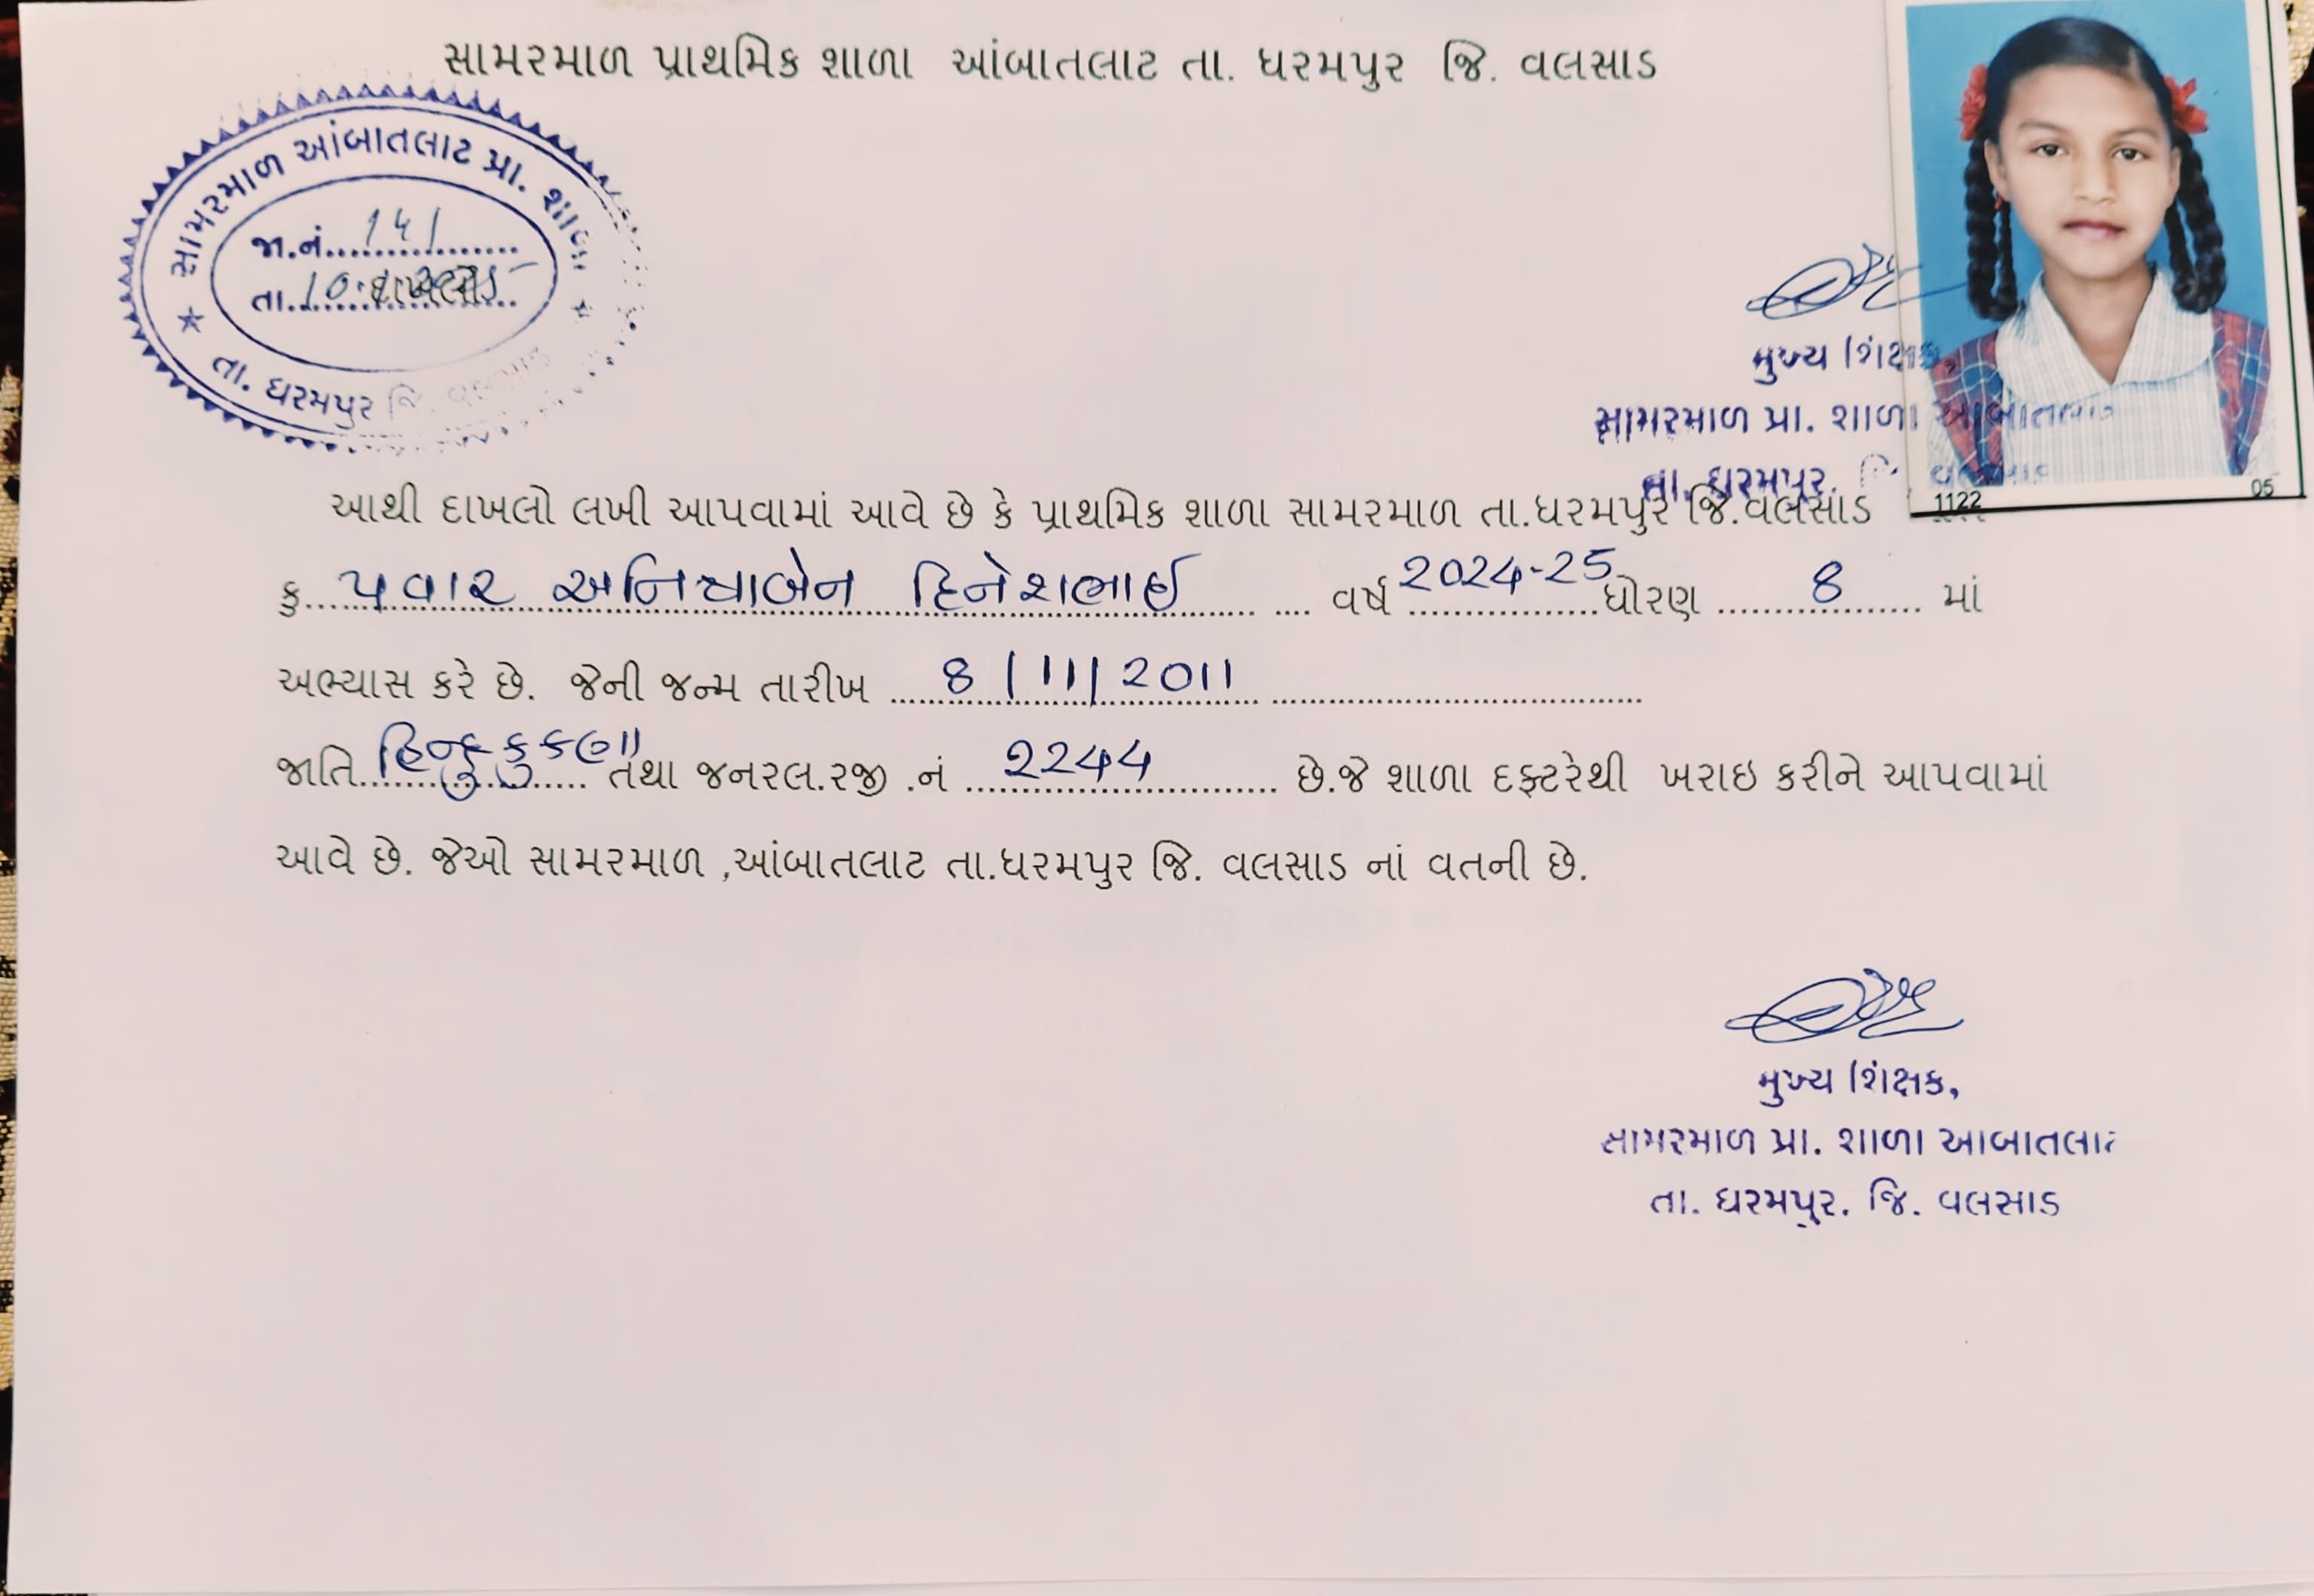 સામરમાળ પ્રાથમિક શાળા આંબાતલાટ તા. ધરમપુર જિ. વલસાડ
સામરમાળ આંબાતલાટ પ્રા. શાળા
જા.નં. 141
તા. 10
દાખલો
તા. ધરમપુર જિ. વલસાડ
મુખ્ય શિક્ષક,
સામરમાળ પ્રા. શાળા આંબાતલાટ
તા. ધરમપુર. જિ. વલસાડ
1122 05
આથી દાખલો લખી આપવામાં આવે છે કે પ્રાથમિક શાળા સામરમાળ તા.ધરમપુર જિ.વલસાડ
કુ. પવાર અનિશાબેન દિનેશભાઈ વર્ષ 2024-25 ધોરણ 8 માં
અભ્યાસ કરે છે. જેની જન્મ તારીખ 8/11/2011
જાતિ હિન્દુ કુકણા તથા જનરલ.રજી .નં 2244 છે.જે શાળા દફ્ટરેથી ખરાઇ કરીને આપવામાં
આવે છે. જેઓ સામરમાળ ,આંબાતલાટ તા.ધરમપુર જિ. વલસાડ નાં વતની છે.
મુખ્ય શિક્ષક,
સામરમાળ પ્રા. શાળા આંબાતલાટ
તા. ધરમપુર. જિ. વલસાડ